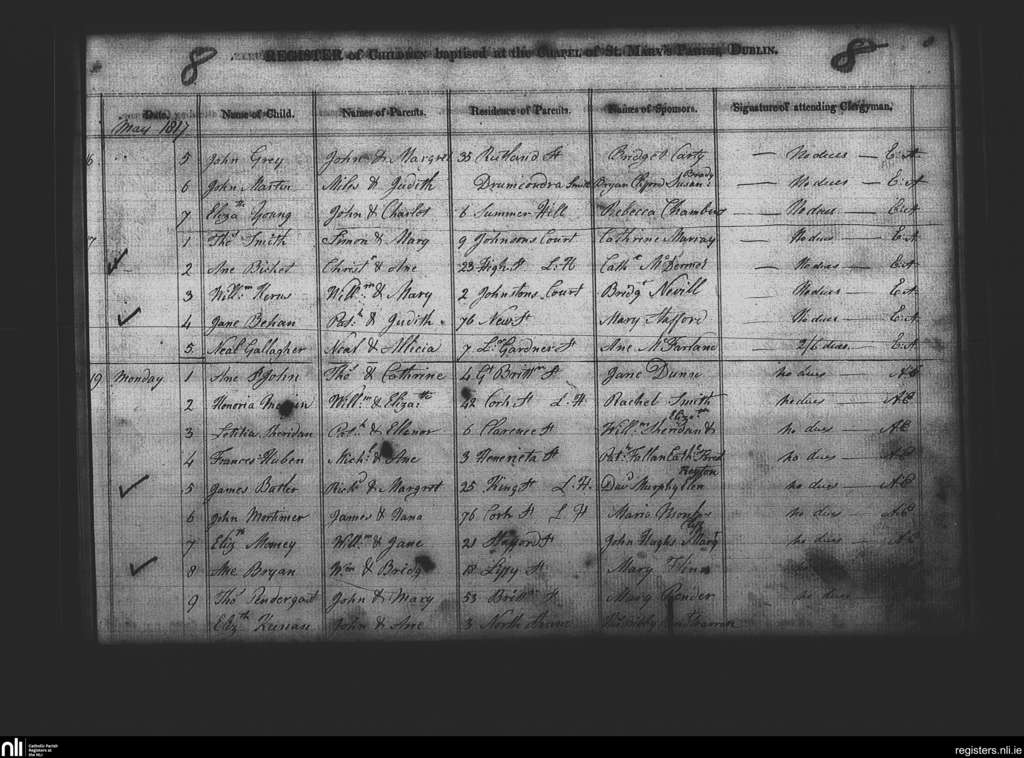 8 REGISTER of CHILDREN baptised at the CHAPEL of St. MARY's PARISH, DUBLIN. 8
Date. Name of Child. Names of Parents. Residence of Parents. Names of Sponsors. Signature of attending Clergyman.
May 1817
6 5 John Grey John & Margret 35 Rutland St Bridget Carty — No dues — E.A
6 John Martin Miles & Judith Drumcondra Bryan Susan Brady — No dues — E.A
7 Elizath Young John & Charlot 6 Summer Hill Rebecca Chambers — No dues — E.A
7 1 Thos Smith Simon & Mary 9 Johnsons Court Cathrine Murray — No dues — E.A
2 Ane Christr & Ane 23 High St L:H Cathe McDermot — No dues — E.A
3 Willm Willm & Mary 2 Johnstons Court Bridgt Nevill — No dues — E.A
4 Jane Behan Patk & Judith 76 New St Mary Stafford — No dues — E.A
5 Neal Gallagher Neal & Allicia 7 Lr Gardner St Ane McFarlane — 2/6 dues — E.A
19 Monday 1 Ane Thos & Cathrine 4 Gt Brittn St Jane Dunne no dues — AC
2 Honoria Willm & Elizath 42 Cork St L:H Rachel Smith no dues — AC
3 Letitia Sheridan Patk & Ellenor 6 Clarence St Willm Sheridan & Elizath no dues — AC
4 Frances Huben Michl & Ane 3 Henerieta St Patk Fallan Cathe no dues — AC
5 James Butler Richd & Margret 25 King St L:H. Davd Murphy Ellen no dues — AC
6 John Mortimer James & Nana 76 Cork St L:H Maria no dues — AC
7 Elizth Willm & Jane 21 Stafford St John Hughs Mary no dues —
8 Ane Bryan Wm & Bridgt 18 Liffy St Mary
9 Thos Pendergast John & Mary 53 Brittn St Mary no dues
Elizth John & Ane 3 North
nli Catholic Parish Registers at the NLI
registers.nli.ie